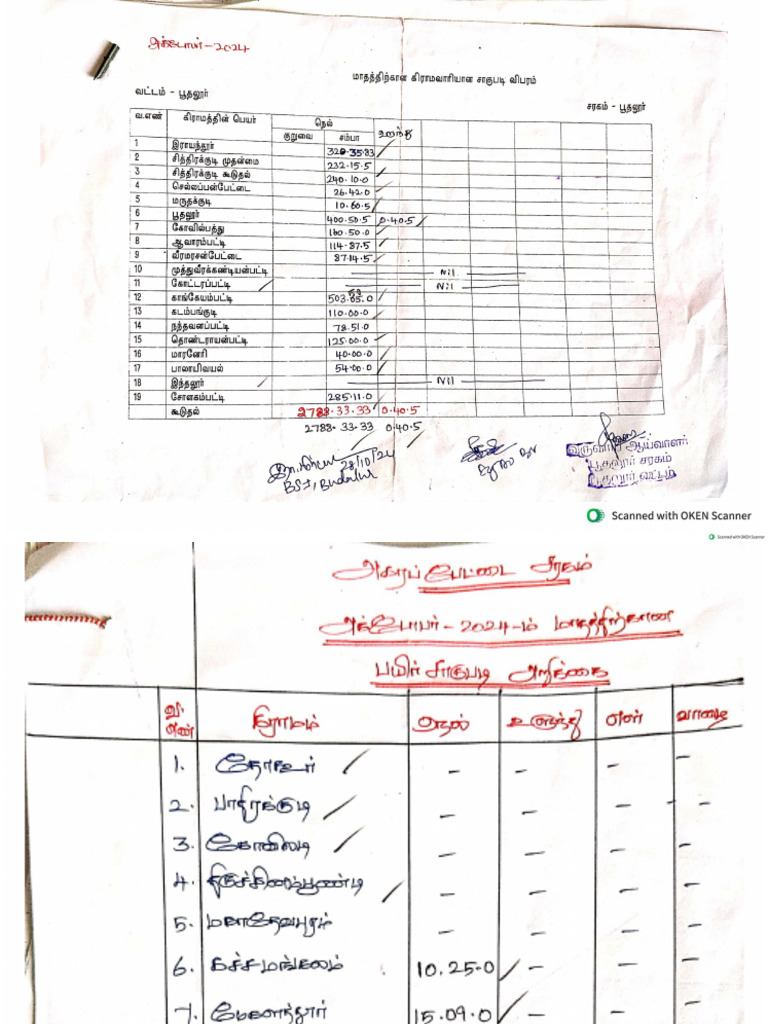 அக்டோபர் - 2024
மாதத்திற்கான கிராமவாரியான சாகுபடி விபரம்
வட்டம் - பூதலூர்
சரகம் - பூதலூர்
வ.எண் கிராமத்தின் பெயர் நெல் உளுந்து
குறுவை சம்பா
1 இராயந்தூர் 320.35.33
2 சித்திரக்குடி முதன்மை 232.15.5
3 சித்திரக்குடி கூடுதல் 240.10.0
4 செல்லப்பன்பேட்டை 26.42.0
5 மருதக்குடி 10.60.5
6 பூதலூர் 400.50.5 0.40.5
7 கோவில்பத்து 160.50.0
8 ஆவாரம்பட்டி 114.87.5
9 வீரமரசன்பேட்டை 87.14.5
10 முத்துவீரக்கண்டியன்பட்டி Nil
11 கோட்டரப்பட்டி Nil
12 காங்கேயம்பட்டி 503.65.0
13 கடம்பங்குடி 110.00.0
14 நந்தவனப்பட்டி 78.51.0
15 தொண்டராயன்பட்டி 125.00.0
16 மாரனேரி 40.00.0
17 பாலாயிவயல் 54.00.0
18 இந்தலூர் Nil
19 சோளகம்பட்டி 285.11.0
கூடுதல் 2788.33.33 0.40.5
2788.33.33 0.40.5
28/10/24
BSI, Budalur
வருவாய் ஆய்வாளர்
பூதலூர் சரகம்
பூதலூர் வட்டம்
Scanned with OKEN Scanner
Scanned with OKEN Scanner
அகரப்பேட்டை சரகம்
அக்டோபர் - 2024-ம் மாதத்திற்கான
பயிர் சாகுபடி அறிக்கை
வ. எண் கிராமம் நெல் உளுந்து எள் வாழை
1. தோகூர் - - - -
2. பாதிரக்குடி - - - -
3. கோவிலடி - - - -
4. திருச்சினம்பூண்டி - - - -
5. மகாதேவபுரம் - - - -
6. கச்சமங்கலம் 10.25.0 - - -
7. மேகளத்தூர் 15.09.0 - - -